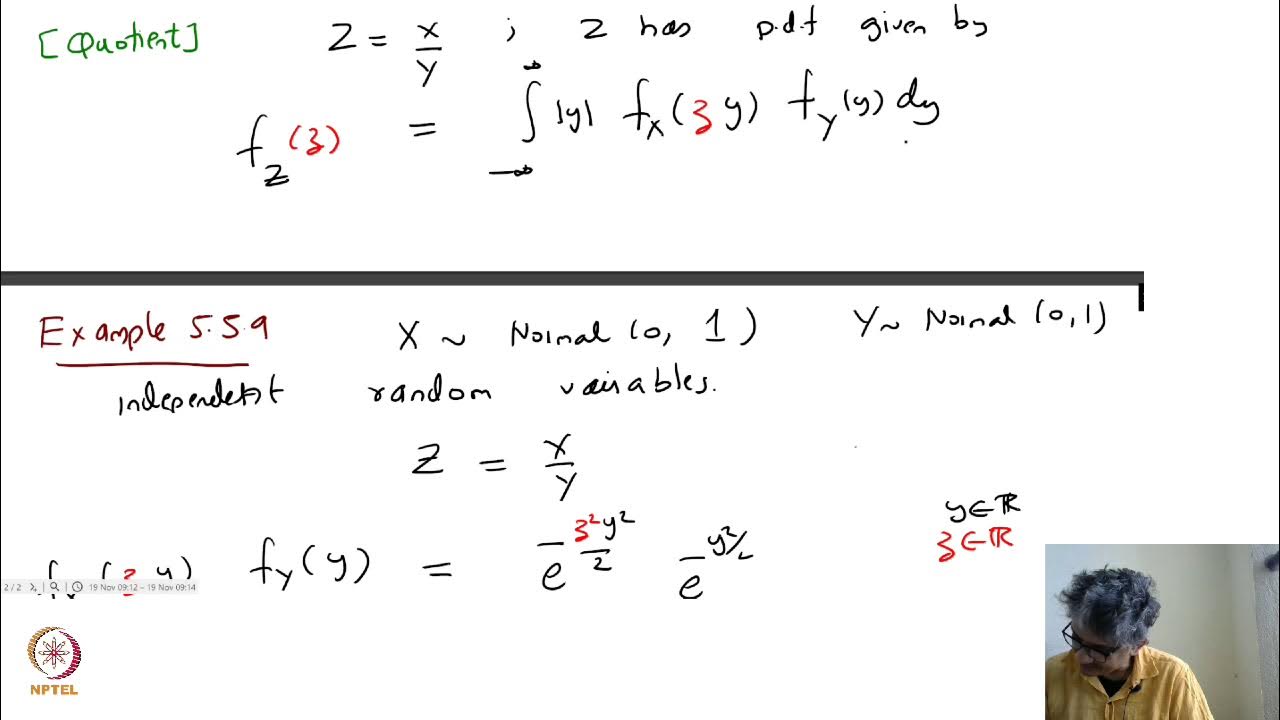 [Quotient] Z = X/Y ; Z has p.d.f given by
f_Z(z) = ∫_{-∞}^{∞} |y| f_X(z y) f_Y(y) dy
Example 5.5.9 X ~ Normal (0, 1) Y ~ Normal (0,1)
independent random variables.
Z = X/Y
y ∈ ℝ
f_X(z y) f_Y(y) = e^{-z²y²/2} e^{-y²/2} z ∈ ℝ
2 / 2 19 Nov 09:12 - 19 Nov 09:14
NPTEL